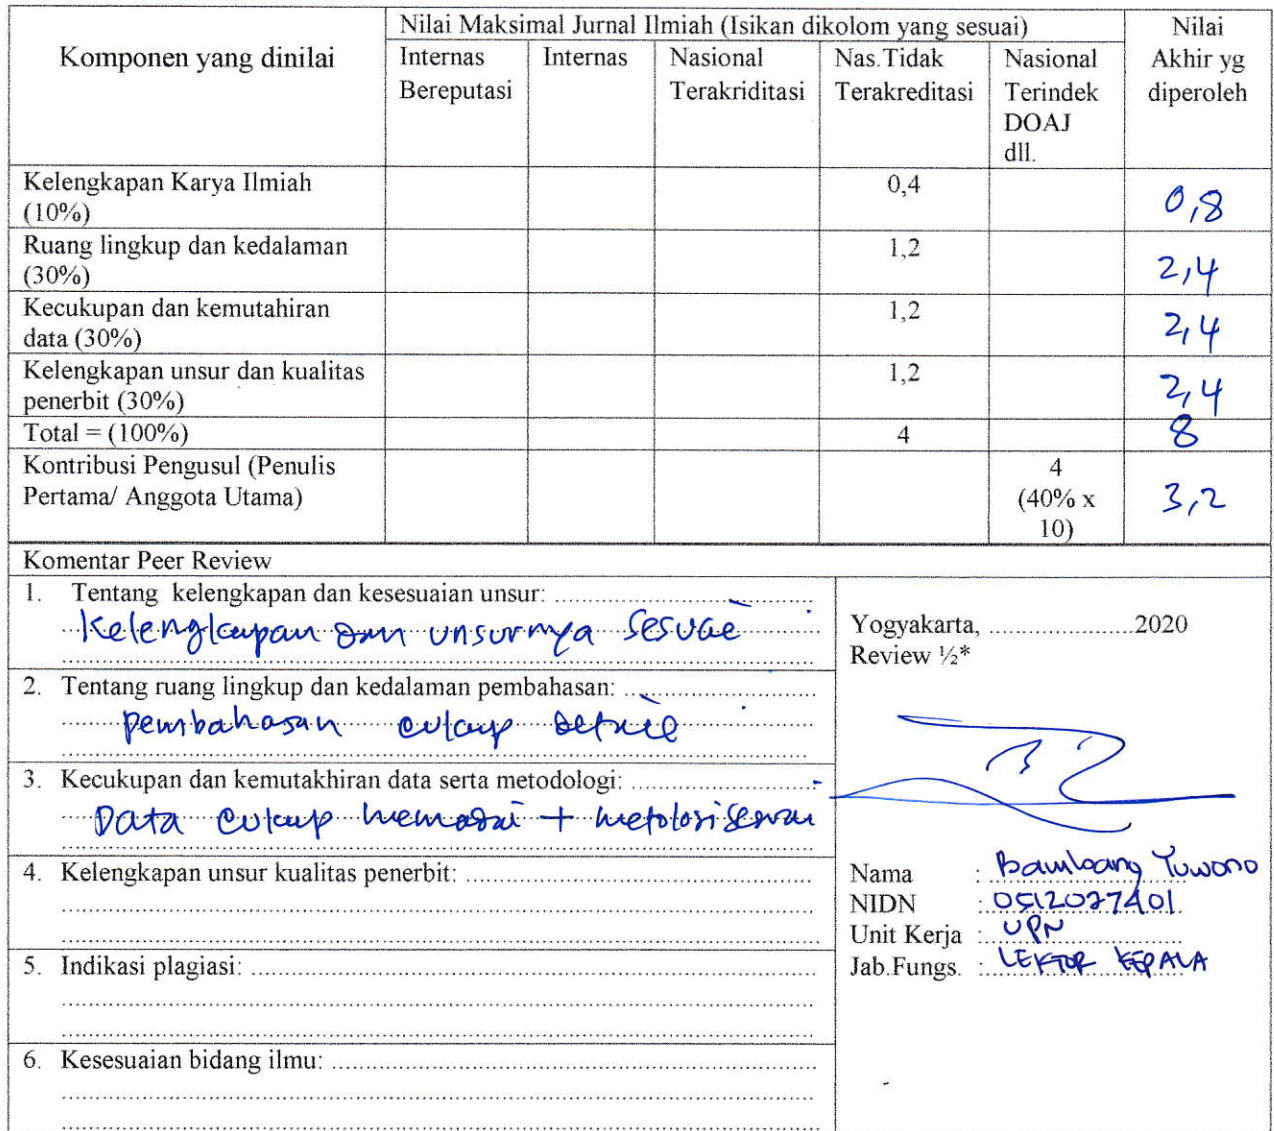 Komponen yang dinilai
Nilai Maksimal Jurnal Ilmiah (Isikan dikolom yang sesuai)
Nilai
Akhir yg
diperoleh
Internas
Bereputasi
Internas
Nasional
Terakriditasi
Nas.Tidak
Terakreditasi
Nasional
Terindek
DOAJ
dll.
Kelengkapan Karya Ilmiah
(10%)
0,4
0,8
Ruang lingkup dan kedalaman
(30%)
1,2
2,4
Kecukupan dan kemutahiran
data (30%)
1,2
2,4
Kelengkapan unsur dan kualitas
penerbit (30%)
1,2
2,4
Total = (100%)
4
8
Kontribusi Pengusul (Penulis
Pertama/ Anggota Utama)
4
(40% x
10)
3,2
Komentar Peer Review
1. Tentang kelengkapan dan kesesuaian unsur: ................................
Kelengkapan dan unsurnya sesuai
2. Tentang ruang lingkup dan kedalaman pembahasan: ......................
pembahasan cukup detail
3. Kecukupan dan kemutakhiran data serta metodologi: ......................
Data cukup memadai + metolosi sesuai
4. Kelengkapan unsur kualitas penerbit: ..........................................
5. Indikasi plagiasi: ..................................................................
6. Kesesuaian bidang ilmu: .........................................................
Yogyakarta, ......................2020
Review ½*
Nama : Bambang Yuwono
NIDN : 0512027401
Unit Kerja : UPN
Jab.Fungs. : LEKTOR KEPALA